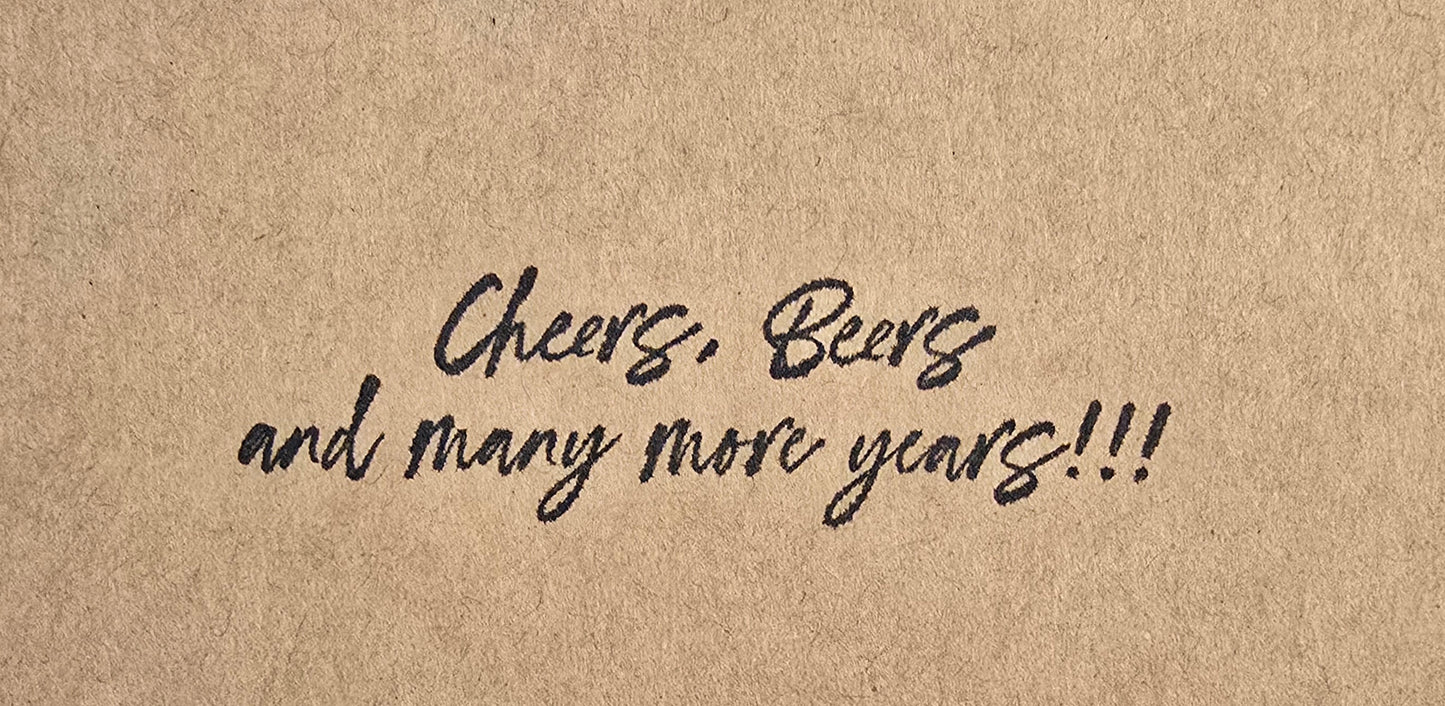 Cheers, Beers
and many more years!!!